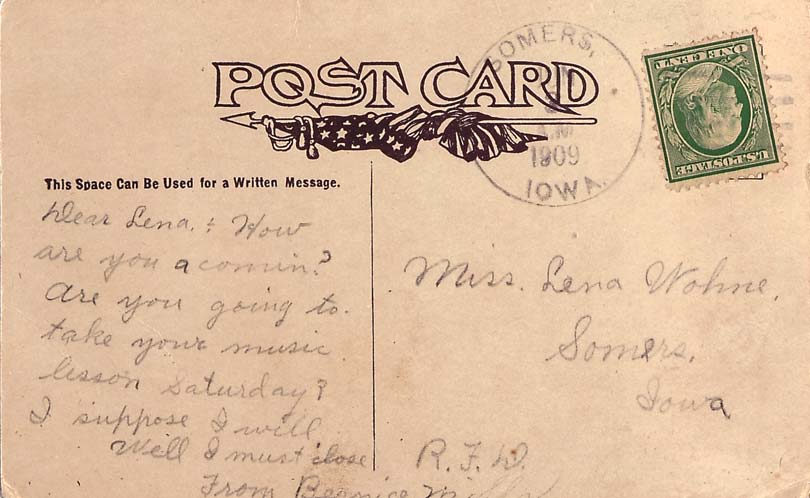 POST CARD
SOMERS,
1909
IOWA.
ONE CENT
U.S. POSTAGE
This Space Can Be Used for a Written Message.
Dear Lena. : How
are you a comin?
Are you going to.
take your music
lesson Saturday?
I suppose I will
Well I must close
From Bernice
Miss. Lena Wohne.
Somers.
Iowa
R. F. D.